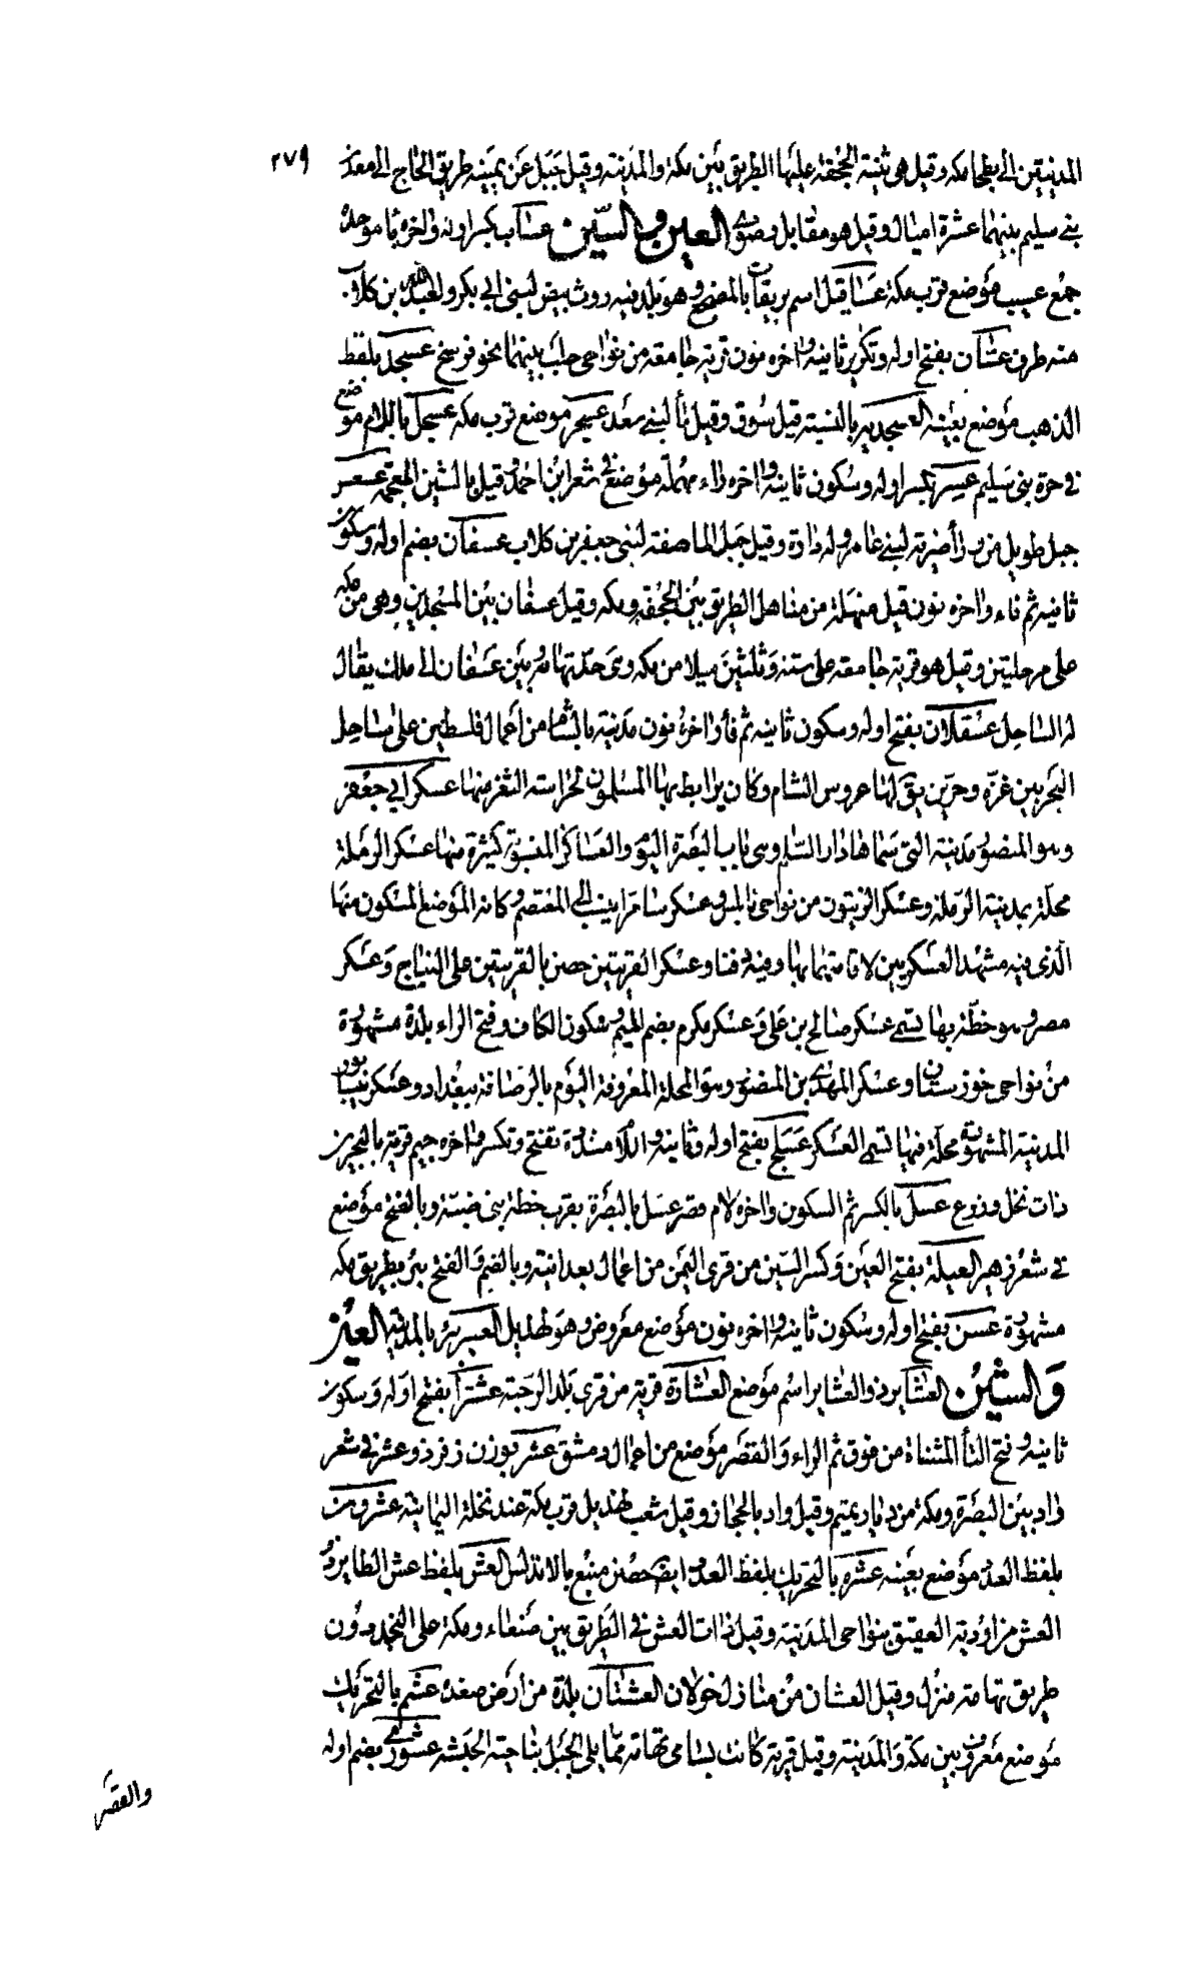 ٢٧٩
المدينتين الى بطحا مكه وقيل هى ثنية الجحفة عليها الطريق بين مكة والمدينة وقيل جبل عن يمينه طريق الحاج الى معدن
بنى سليم بينهما عشرة اميال وقيل هو مقابل وضوى العين والسين عساب بكسر اوله واخره با موحدة
جمع عسيب موضع قرب مكة عسا قيل اسم بالمضيح وهو بلد فيه روث بيض لبنى ابى بكر والعبد بن كلاب
منه طرف عسان بفتح اوله وتكرير ثانيه واخره نون قرية جامعة من نواحى حلب بينهما نحو فرسخ عسجد بلفظ
الذهب موضع بعينه العسجدية بالنسبة قيل سوق وقيل مأ لبنى سعد عسجر موضع قرب مكه عسجل باللام موضع
فى حرة بنى سليم عسر بكسر اوله وسكون ثانيه واخره راء مهملة موضع فى شعر ابن احمر وقيل بالشين المعجمة عسعس
جبل طويل من ورأ ضرية لبنى عامر وله دارة وقيل جبل الماصفة لبنى جعفر بن كلاب عسفان بضم اوله وسكون
ثانيه ثم فاء واخره نون قيل منهلة من مناهل الطريق بين الجحفة ومكه وقيل عسفان بين المسجدين وهى من مكه
على مرحلتين وقيل هو قرية جامعة على ستة وثلثين ميلا من مكه وهى حد تهامة وبين عسفان الى ملل يقال
له الساحل عسقلان بفتح اوله وسكون ثانيه ثم فأ واخره نون مدينة بالشام من اعمال فلسطين على ساحل
البحر بين غزه وجبرين يق لها عروس الشام وكان يرابط بها المسلمون لحراسة الثغر منها عسكر ابى جعفر
وهو المنصور مدينة التى سماها دار السلام وهى باب البصرة اليوم والعساكر المنسوبة كثيرة منها عسكر الرملة
محلة بمدينة الرملة وعسكر الزيتون من نواحى نابلس وعسكر سامرا ينسب الى المعتصم وكانه الموضع المسكون منها
الذى فيه مشهد العسكريين لاقامتهما بها وفيه دفنا وعسكر القريتين حصن بالقريتين على النباج وعسكر
مصر وهو خطة بها تسمى عسكر صالح بن على وعسكر مكرم بضم الميم وسكون الكاف وفتح الراء بلدة مشهورة
من نواحى خوزستان وعسكر المهدى بن المنصور وهو المحلة المعروفة اليوم بالرصافة ببغداد وعسكر نيسابور
المدينة المشهورة محلة فيها تسمى العسكر عسلج بفتح اوله وثانيه واللام مشددة تفتح وتكسر واخره جيم قرية بالبحرين
ذات نخل وزرع عسل بالكسر ثم السكون واخره لام قصر عسل بالبصرة بقرب خطة بنى ضبة وبالفتح موضع
فى شعر زهير العسيلة بفتح العين وكسر السين من قرى اليمن من اعمال بعدانية وبالضم والفتح بئر بطريق مكه
مشهورة عسن بفتح اوله وسكون ثانيه واخره نون موضع معروف وهو لهذيل العسير بئر بالمدينة العين
والشين العشاير ذو العشاير اسم موضع العشارة قرية من قرى بلد الرحبة عشترا بفتح اوله وسكون
ثانيه وفتح التأ المثناة من فوق ثم الراء والقصر موضع من اعمال دمشق عشر بوزن زفر ذو عشر فى شعر
واد بين البصرة ومكة من ديار تميم وقيل واد بالحجاز وقيل شعب لهذيل قرب مكة عند نخلة اليمانية عشرون
بلفظ العدد موضع بعينه عشره بالتحريك بلفظ العدد ايضا حصن منيع بالاندلس العش بلفظ عش الطاير ذو
العش من اودية العقيق بنواحى المدينة وقيل ذات العش فى الطريق بين صنعاء ومكة على النجد دون
طريق تهامة منزل وقيل العشان من منازل خولان العشتان بلدة من ارض صعدة عشم بالتحريك
موضع معروف بين مكة والمدينة وقيل قرية كانت بشامى تهامة مما يلى الجبل بناحية الحبشه عشورى بضم اوله
والقصر